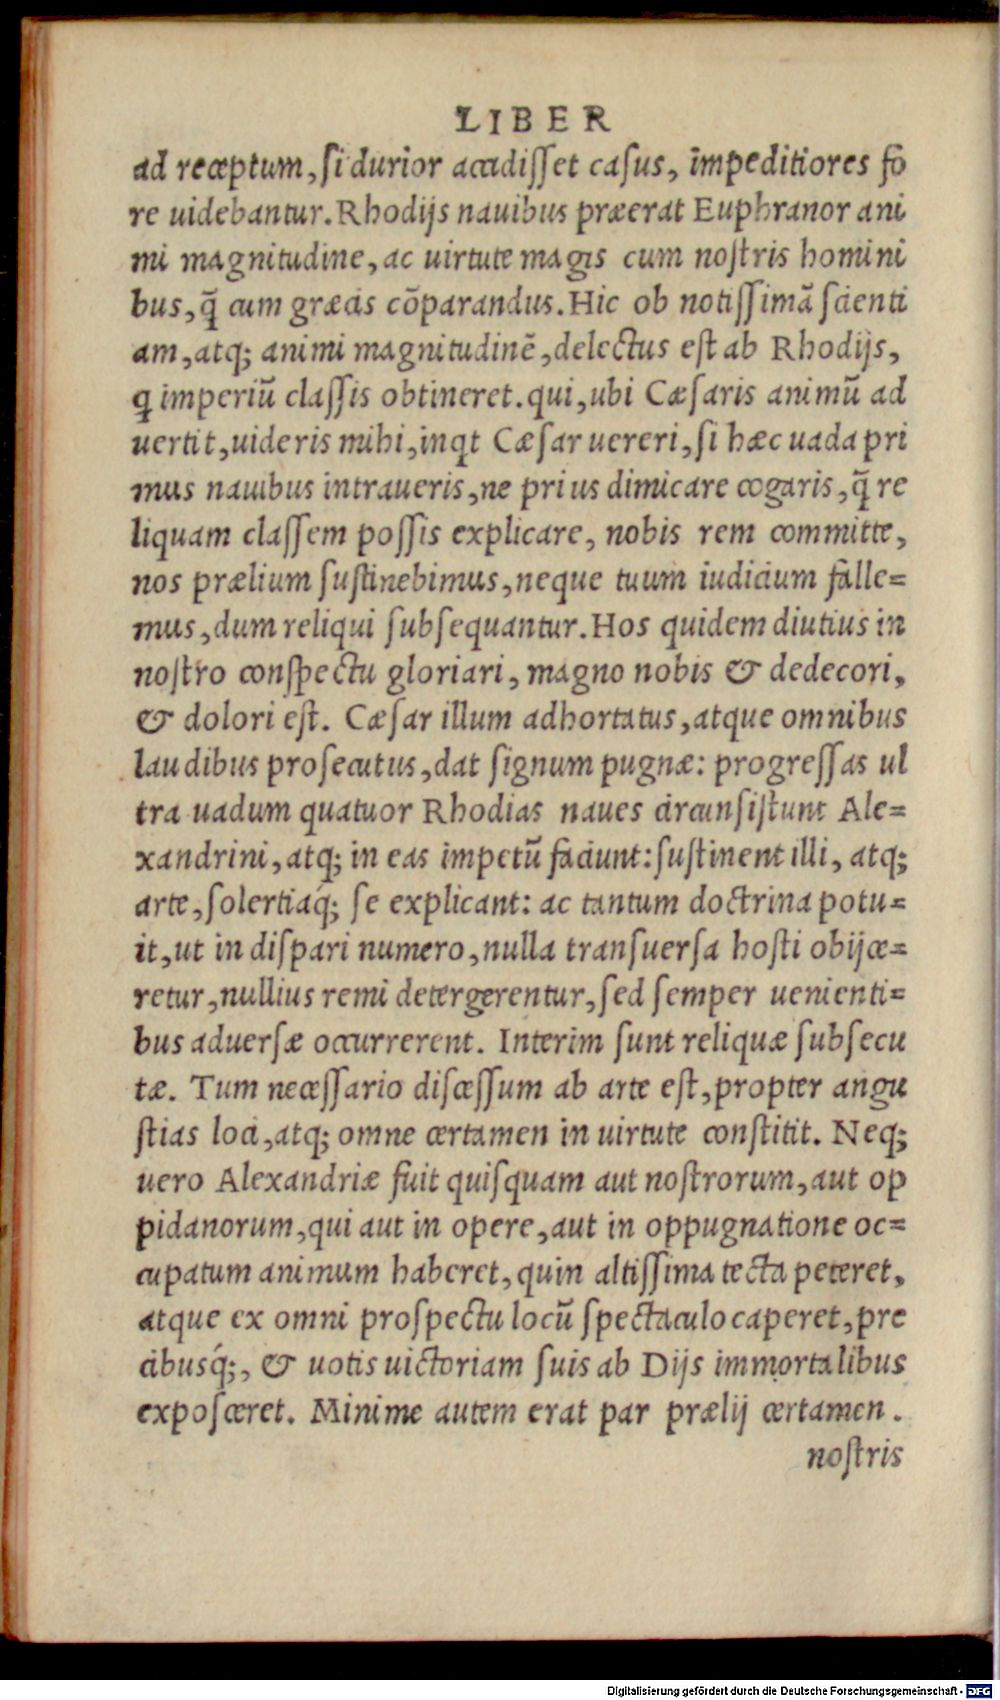 LIBER
ad receptum, ſi durior accidiſſet caſus, impeditiores fo
re uidebantur. Rhodijs nauibus præerat Euphranor ani
mi magnitudine, ac uirtute magis cum noſtris homini
bus, q̃ cum græcis cōparandus. Hic ob notiſſimã ſcienti
am, atq; animi magnitudinẽ, delectus eſt ab Rhodijs,
ꝗ imperiũ claſſis obtineret. qui, ubi Cæſaris animũ ad
uertit, uideris mihi, inqt Cæſar uereri, ſi hæc uada pri
mus nauibus intraueris, ne prius dimicare cogaris, q̃ re
liquam claſſem poſſis explicare, nobis rem committe,
nos prælium ſuſtinebimus, neque tuum iudicium falle=
mus, dum reliqui ſubſequantur. Hos quidem diutius in
noſtro conſpectu gloriari, magno nobis & dedecori,
& dolori eſt. Cæſar illum adhortatus, atque omnibus
laudibus proſecutus, dat ſignum pugnæ: progreſſas ul
tra uadum quatuor Rhodias naues circunſiſtunt Ale=
xandrini, atq; in eas impetũ faciunt: ſuſtinent illi, atq;
arte, ſolertiaq́; ſe explicant: ac tantum doctrina potu=
it, ut in diſpari numero, nulla tranſuerſa hoſti obijce=
retur, nullius remi detergerentur, ſed ſemper uenienti=
bus aduerſæ occurrerent. Interim ſunt reliquæ ſubſecu
tæ. Tum neceſſario diſceſſum ab arte eſt, propter angu
ſtias loci, atq; omne certamen in uirtute conſtitit. Neq;
uero Alexandriæ fuit quiſquam aut noſtrorum, aut op
pidanorum, qui aut in opere, aut in oppugnatione oc=
cupatum animum haberet, quin altiſſima tecta peteret,
atque ex omni proſpectu locũ ſpectaculo caperet, pre
cibusq́;, & uotis uictoriam ſuis ab Dijs immortalibus
expoſceret. Minime autem erat par prælij certamen.
noſtris
Digitalisierung gefördert durch die Deutsche Forschungsgemeinschaft - DFG